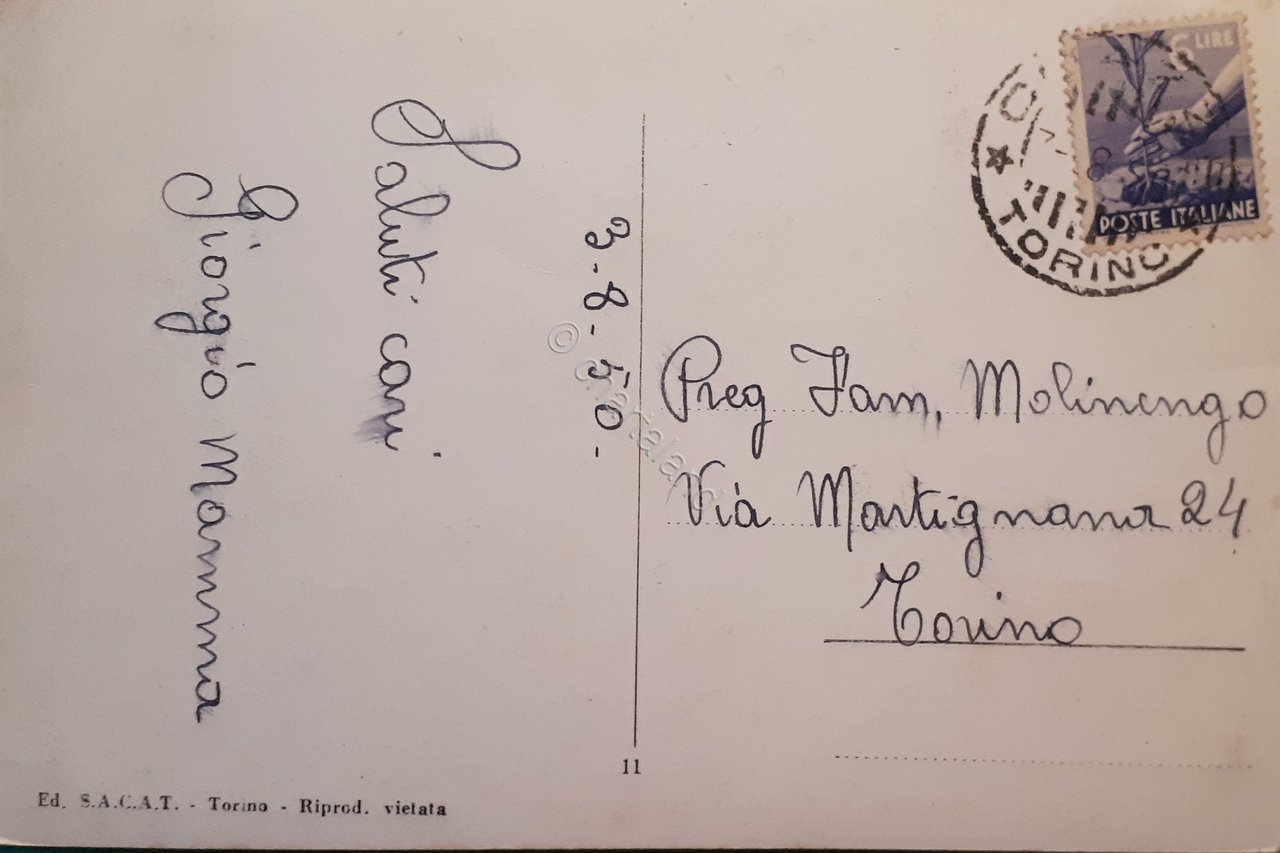 3-8-50-
Saluti cari
Giorgio Mamma
6 LIRE
POSTE ITALIANE
TORINO
Preg Fam. Molinengo
Via Martignana 24
Torino
11
Ed. S.A.C.A.T. - Torino - Riprod. vietata